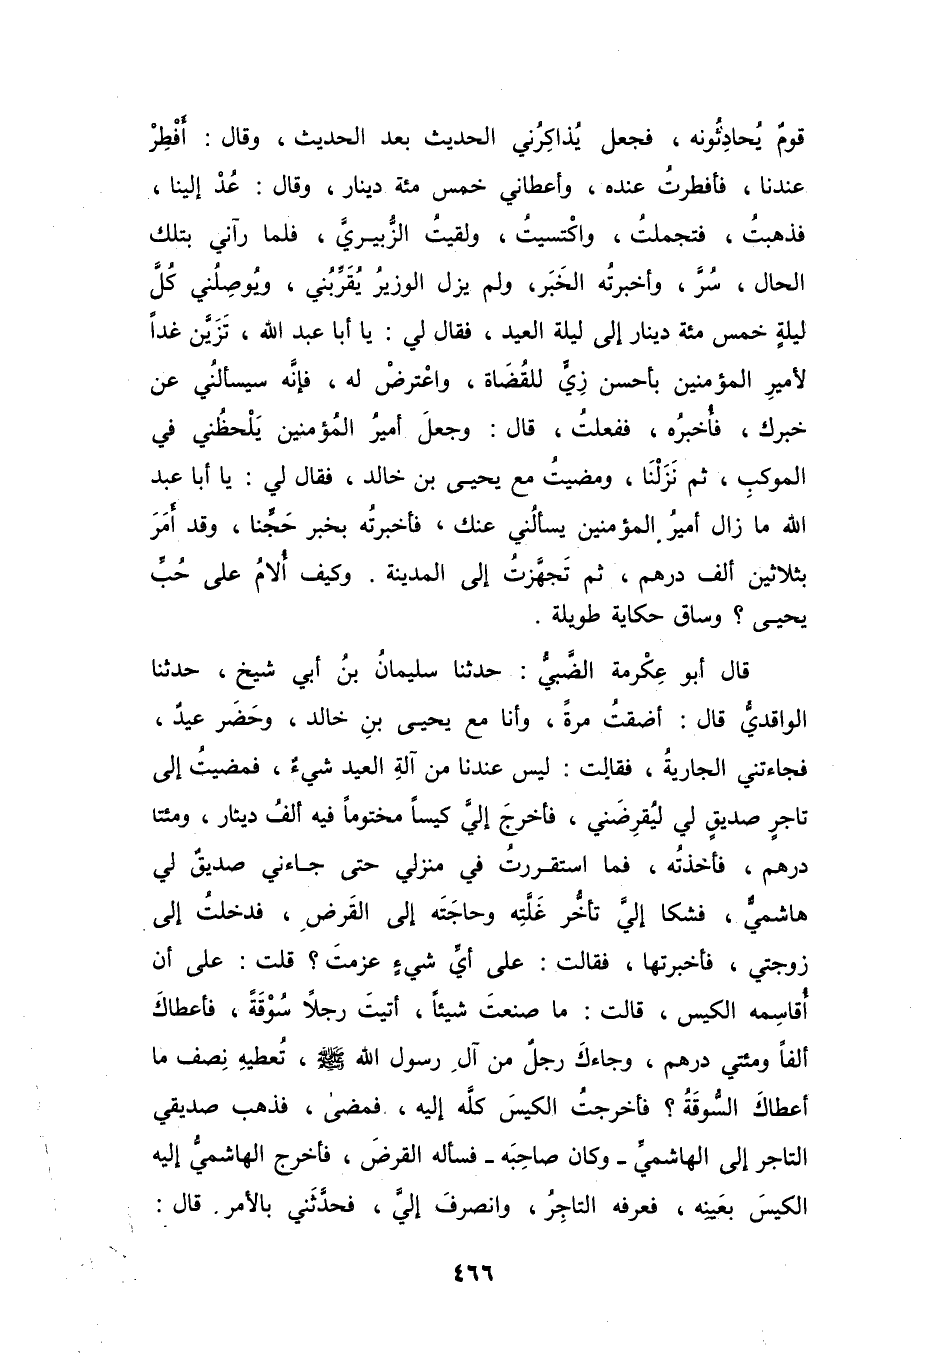 قومٌ يُحادِثُونه ، فجعل يُذاكِرُني الحديث بعد الحديث ، وقال : أَفْطِرْ
عندنا ، فأفطرتُ عنده ، وأعطاني خمس مئة دينار ، وقال : عُدْ إلينا ،
فذهبتُ ، فتجملتُ ، واكْتسيتُ ، ولقيتُ الزُّبيـريَّ ، فلما رآني بتلك
الحال ، سُرَّ ، وأخبرتُه الخَبَر، ولم يزل الوزيرُ يُقَرِّبُني ، ويُوصِلُني كُلَّ
ليلةٍ خمس مئة دينار إلى ليلة العيد ، فقال لي : يا أبا عبد الله ، تَزَيَّن غداً
لأميرِ المؤمنين بأحسن زِيٍّ للقُضَاة ، واعْترضْ له ، فإنَّه سيسألُني عن
خبرك ، فأُخبرُه ، ففعلتُ ، قال : وجعلَ أميرُ المُؤمنين يَلْحظُني في
الموكبِ ، ثم نَزَلْنَا ، ومضيتُ مع يحيـى بن خالد ، فقال لي : يا أبا عبد
الله ما زال أميرُ المؤمنين يسألُني عنك ، فأخبرتُه بخبر حَجِّنا ، وقد أَمَرَ
بثلاثين ألف درهم ، ثم تَجهَّزتُ إلى المدينة . وكيف أُلامُ على حُبِّ
يحيـى ؟ وساق حكاية طويلة .
قال أبو عِكْرمة الضَّبيُّ : حدثنا سليمانُ بنُ أبي شيخ ، حدثنا
الواقديُّ قال : أضقتُ مرةً ، وأنا مع يحيـى بنِ خالد ، وحَضَر عيدٌ ،
فجاءتني الجاريةُ ، فقالت : ليس عندنا من آلةِ العيد شيءٌ ، فمضيتُ إلى
تاجرٍ صديقٍ لي ليُقرِضَني ، فأخرجَ إليَّ كيساً مختوماً فيه ألفُ دينار ، ومئتا
درهم ، فأخذتُه ، فما استقـررتُ في منزلي حتى جـاءني صديقٌ لي
هاشميٌّ ، فشكا إليَّ تأخُّر غَلَّتِه وحاجَتَه إلى القَرض ، فدخلتُ إلى
زوجتي ، فأخبرتها ، فقالت : على أيِّ شيءٍ عزمتَ ؟ قلت : على أن
أُقاسِمه الكيس ، قالت : ما صنعتَ شيئاً ، أتيتَ رجلاً سُوْقَةً ، فأعطاكَ
ألفاً ومئتي درهم ، وجاءكَ رجلٌ من آل رسول الله ﷺ ، تُعطيهِ نِصف ما
أعطاكَ السُّوقَةُ ؟ فأخرجتُ الكيسَ كلَّه إليه ، فمضىٰ ، فذهب صديقي
التاجر إلى الهاشميِّ ـ وكان صاحِبَه ـ فسأله القرضَ ، فأخرج الهاشميُّ إليه
الكيسَ بعَينِه ، فعرفه التاجِرُ ، وانصرفَ إليَّ ، فحدَّثَني بالأمر . قال :
٤٦٦